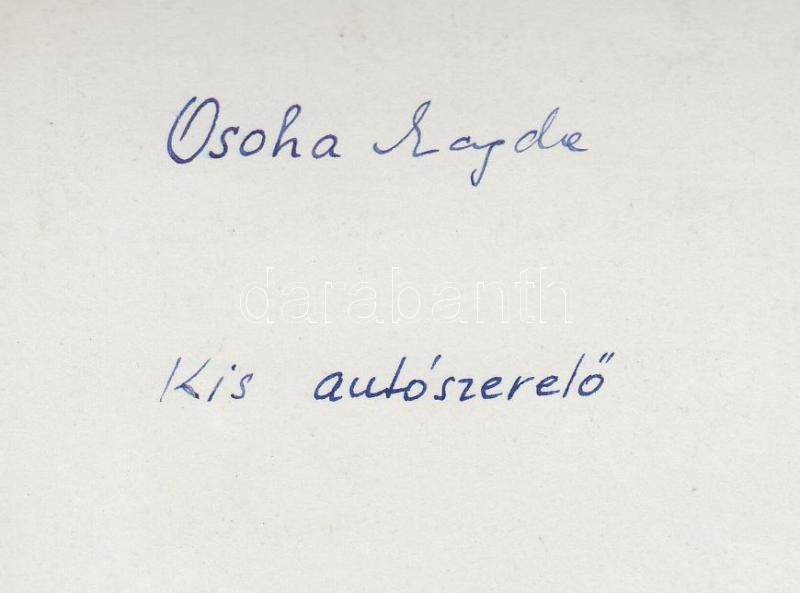 Osoha Magda
darabanth
Kis autószerelő